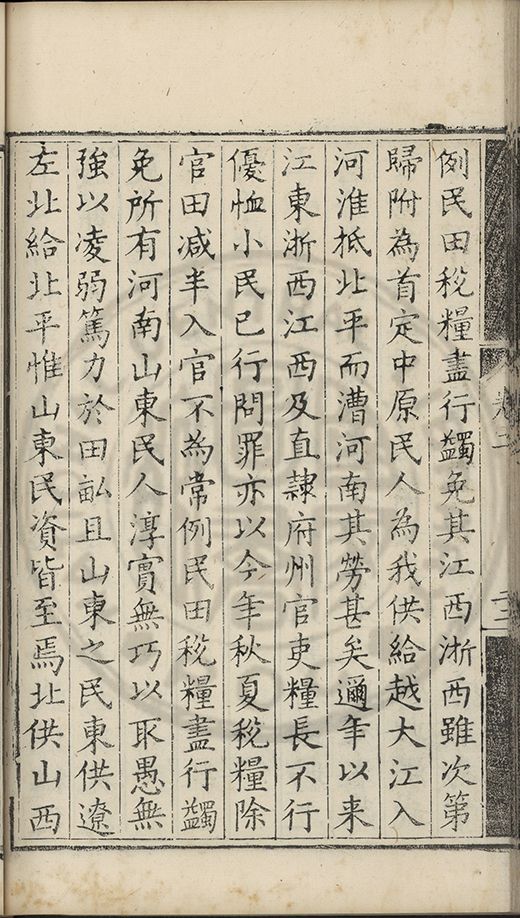 例民田稅糧盡行蠲免其江西浙西雖次第
歸附為首定中原民人為我供給越大江入
河淮抵北平而漕河南其勞甚矣邇年以来
江東浙西江西及直隸府州官吏糧長不行
優恤小民已行問罪亦以今年秋夏稅糧除
官田減半入官不為常例民田稅糧盡行蠲
免所有河南山東民人淳實無巧以取愚無
強以凌弱篤力於田畝且山東之民東供遼
左北給北平惟山東民資皆至焉北供山西
卷二